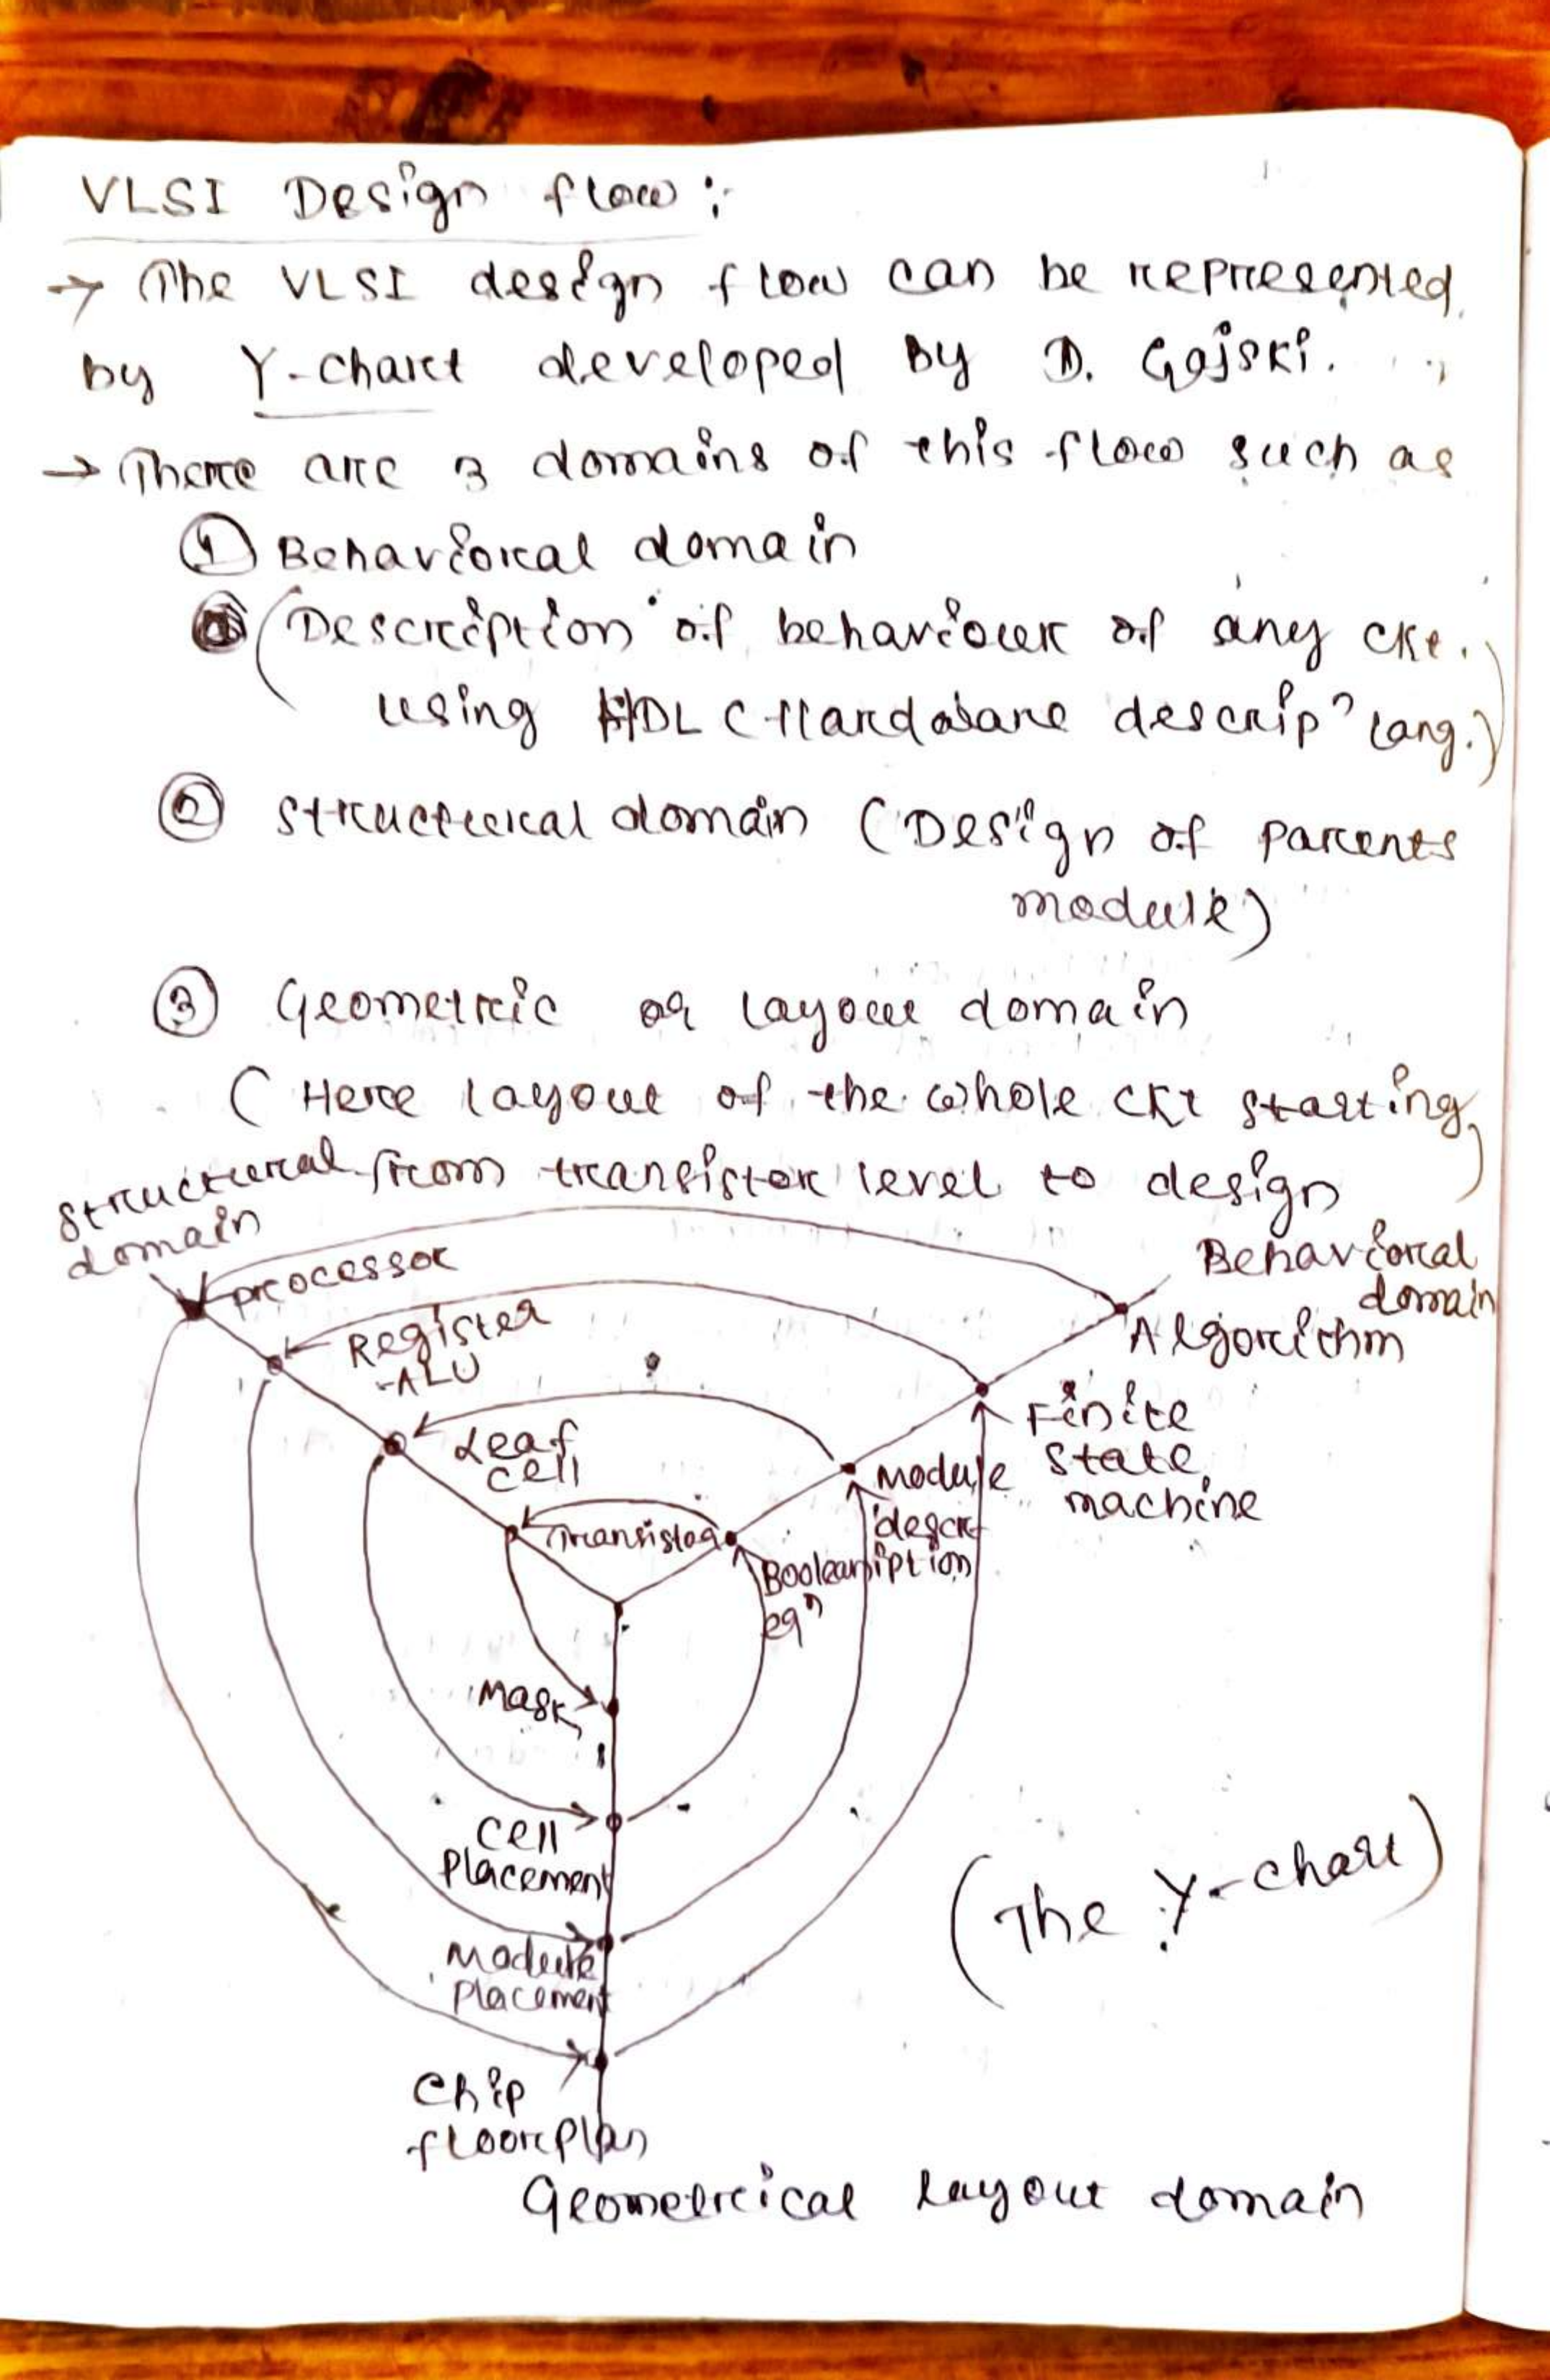 VLSI Design flow :
→ The VLSI design flow can be represented
by Y-chart developed by D. Gajski.
→ There are 3 domains of this flow such as
① Behavioral domain
(Description of behaviour of any ckt.
using HDL (Hardware descripⁿ lang.)
② structural domain (Design of parents
module)
③ Geometric or layout domain
( Here layout of the whole ckt starting
from transistor level to design )
structural
domain
Behavioral
domain
processor
Algorithm
Register
-ALU
Finite
state
machine
Leaf
cell
Module
descr-
iption
Transistor
Boolean
eqⁿ
Mask
Cell
Placement
Module
Placement
(The Y-chart)
Chip
floorplan
Geometrical layout domain